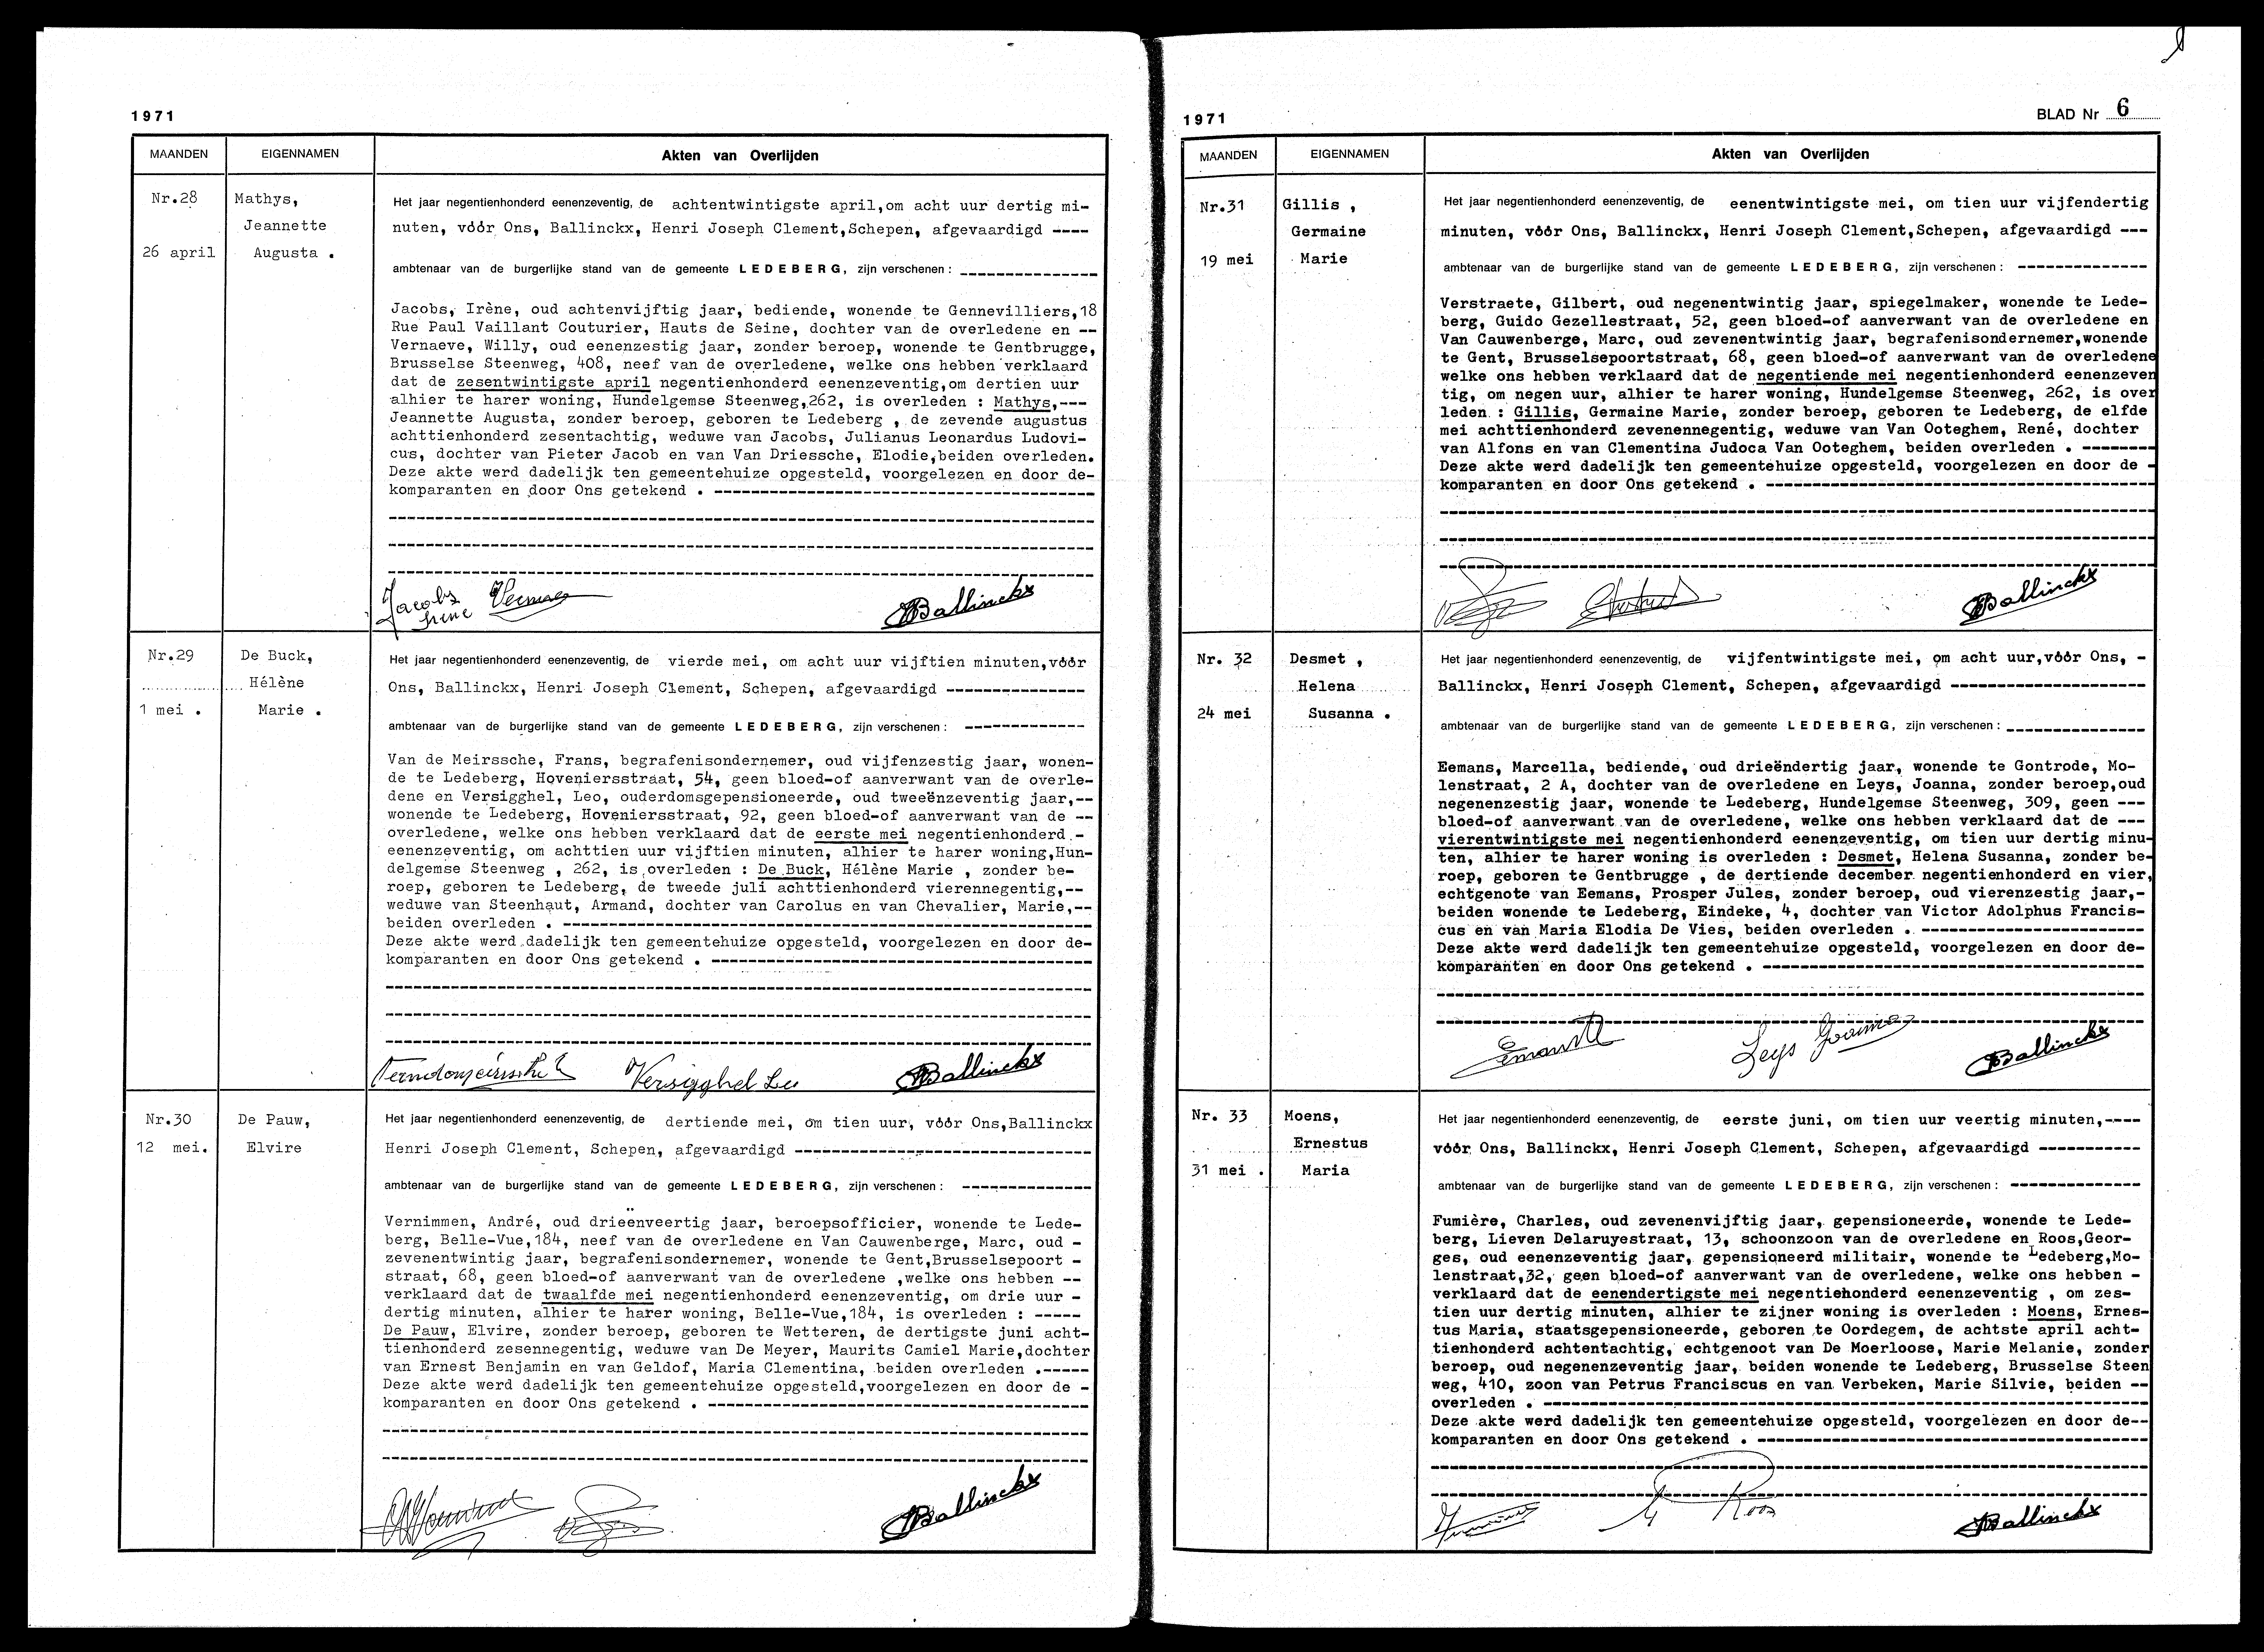 1971
MAANDEN
EIGENNAMEN
Akten van Overlijden
Nr.28
26 april
Mathys,
Jeannette
Augusta .
Het jaar negentienhonderd eenenzeventig, de achtentwintigste april,om acht uur dertig mi-
nuten, vóór Ons, Ballinckx, Henri Joseph Clement,Schepen, afgevaardigd ----
ambtenaar van de burgerlijke stand van de gemeente LEDEBERG, zijn verschenen : --------------
Jacobs, Irène, oud achtenvijftig jaar, bediende, wonende te Gennevilliers,18
Rue Paul Vaillant Couturier, Hauts de Seine, dochter van de overledene en --
Vernaeve, Willy, oud eenenzestig jaar, zonder beroep, wonende te Gentbrugge,
Brusselse Steenweg, 408, neef van de overledene, welke ons hebben verklaard
dat de zesentwintigste april negentienhonderd eenenzeventig,om dertien uur
alhier te harer woning, Hundelgemse Steenweg,262, is overleden : Mathys,---
Jeannette Augusta, zonder beroep, geboren te Ledeberg , de zevende augustus
achttienhonderd zesentachtig, weduwe van Jacobs, Julianus Leonardus Ludovi-
cus, dochter van Pieter Jacob en van Van Driessche, Elodie,beiden overleden.
Deze akte werd dadelijk ten gemeentehuize opgesteld, voorgelezen en door de-
komparanten en door Ons getekend . ------------------------------------------
Jacobs
Irène
Ballinckx
Nr.29
1 mei .
De Buck,
Hélène
Marie .
Het jaar negentienhonderd eenenzeventig, de vierde mei, om acht uur vijftien minuten,vóór
Ons, Ballinckx, Henri Joseph Clement, Schepen, afgevaardigd ---------------
ambtenaar van de burgerlijke stand van de gemeente LEDEBERG, zijn verschenen : -------------
Van de Meirssche, Frans, begrafenisondernemer, oud vijfenzestig jaar, wonen-
de te Ledeberg, Hoveniersstraat, 54, geen bloed-of aanverwant van de overle-
dene en Versigghel, Leo, ouderdomsgepensioneerde, oud tweeënzeventig jaar,--
wonende te Ledeberg, Hoveniersstraat, 92, geen bloed-of aanverwant van de --
overledene, welke ons hebben verklaard dat de eerste mei negentienhonderd -
eenenzeventig, om achttien uur vijftien minuten, alhier te harer woning,Hun-
delgemse Steenweg , 262, is overleden : De Buck, Hélène Marie , zonder be-
roep, geboren te Ledeberg, de tweede juli achttienhonderd vierennegentig,--
weduwe van Steenhaut, Armand, dochter van Carolus en van Chevalier, Marie,--
beiden overleden . ---------------------------------------------------------
Deze akte werd dadelijk ten gemeentehuize opgesteld, voorgelezen en door de-
komparanten en door Ons getekend . -----------------------------------------
Versigghel Leo
Ballinckx
Nr.30
12 mei.
De Pauw,
Elvire
Het jaar negentienhonderd eenenzeventig, de dertiende mei, om tien uur, vóór Ons,Ballinckx
Henri Joseph Clement, Schepen, afgevaardigd --------------------------------
ambtenaar van de burgerlijke stand van de gemeente LEDEBERG, zijn verschenen : --------------
Vernimmen, André, oud drieënveertig jaar, beroepsofficier, wonende te Lede-
berg, Belle-Vue,184, neef van de overledene en Van Cauwenberge, Marc, oud -
zevenentwintig jaar, begrafenisondernemer, wonende te Gent,Brusselsepoort -
straat, 68, geen bloed-of aanverwant van de overledene ,welke ons hebben --
verklaard dat de twaalfde mei negentienhonderd eenenzeventig, om drie uur -
dertig minuten, alhier te harer woning, Belle-Vue,184, is overleden : -----
De Pauw, Elvire, zonder beroep, geboren te Wetteren, de dertigste juni acht-
tienhonderd zesennegentig, weduwe van De Meyer, Maurits Camiel Marie,dochter
van Ernest Benjamin en van Geldof, Maria Clementina, beiden overleden .-----
Deze akte werd dadelijk ten gemeentehuize opgesteld,voorgelezen en door de -
komparanten en door Ons getekend . -----------------------------------------
Ballinckx
1971
BLAD Nr 6
MAANDEN
EIGENNAMEN
Akten van Overlijden
Nr.31
19 mei
Gillis ,
Germaine
Marie
Het jaar negentienhonderd eenenzeventig, de eenentwintigste mei, om tien uur vijfendertig
minuten, vóór Ons, Ballinckx, Henri Joseph Clement,Schepen, afgevaardigd ---
ambtenaar van de burgerlijke stand van de gemeente LEDEBERG, zijn verschenen : --------------
Verstraete, Gilbert, oud negenentwintig jaar, spiegelmaker, wonende te Lede-
berg, Guido Gezellestraat, 52, geen bloed-of aanverwant van de overledene en
Van Cauwenberge, Marc, oud zevenentwintig jaar, begrafenisondernemer,wonende
te Gent, Brusselsepoortstraat, 68, geen bloed-of aanverwant van de overledene
welke ons hebben verklaard dat de negentiende mei negentienhonderd eenenzeven
tig, om negen uur, alhier te harer woning, Hundelgemse Steenweg, 262, is over
leden : Gillis, Germaine Marie, zonder beroep, geboren te Ledeberg, de elfde
mei achttienhonderd zevenennegentig, weduwe van Van Ooteghem, René, dochter
van Alfons en van Clementina Judoca Van Ooteghem, beiden overleden . --------
Deze akte werd dadelijk ten gemeentehuize opgesteld, voorgelezen en door de -
komparanten en door Ons getekend . ------------------------------------------
Ballinckx
Nr. 32
24 mei
Desmet ,
Helena
Susanna .
Het jaar negentienhonderd eenenzeventig, de vijfentwintigste mei, om acht uur,vóór Ons, -
Ballinckx, Henri Joseph Clement, Schepen, afgevaardigd ---------------------
ambtenaar van de burgerlijke stand van de gemeente LEDEBERG, zijn verschenen : ---------------
Eemans, Marcella, bediende, oud drieëndertig jaar, wonende te Gontrode, Mo-
lenstraat, 2 A, dochter van de overledene en Leys, Joanna, zonder beroep,oud
negenenzestig jaar, wonende te Ledeberg, Hundelgemse Steenweg, 309, geen ---
bloed-of aanverwant van de overledene, welke ons hebben verklaard dat de ---
vierentwintigste mei negentienhonderd eenenzeventig, om tien uur dertig minu-
ten, alhier te harer woning is overleden : Desmet, Helena Susanna, zonder be-
roep, geboren te Gentbrugge , de dertiende december negentienhonderd en vier,
echtgenote van Eemans, Prosper Jules, zonder beroep, oud vierenzestig jaar,-
beiden wonende te Ledeberg, Eindeke, 4, dochter van Victor Adolphus Francis-
cus en van Maria Elodia De Vies, beiden overleden . ------------------------
Deze akte werd dadelijk ten gemeentehuize opgesteld, voorgelezen en door de-
komparanten en door Ons getekend . -----------------------------------------
Leys Joanna
Ballinckx
Nr. 33
31 mei .
Moens,
Ernestus
Maria
Het jaar negentienhonderd eenenzeventig, de eerste juni, om tien uur veertig minuten,----
vóór Ons, Ballinckx, Henri Joseph Clement, Schepen, afgevaardigd -----------
ambtenaar van de burgerlijke stand van de gemeente LEDEBERG, zijn verschenen : --------------
Fumière, Charles, oud zevenenvijftig jaar, gepensioneerde, wonende te Lede-
berg, Lieven Delaruyestraat, 13, schoonzoon van de overledene en Roos,Geor-
ges, oud eenenzeventig jaar, gepensioneerd militair, wonende te Ledeberg,Mo-
lenstraat,32, geen bloed-of aanverwant van de overledene, welke ons hebben -
verklaard dat de eenendertigste mei negentienhonderd eenenzeventig , om zes-
tien uur dertig minuten, alhier te zijner woning is overleden : Moens, Ernes-
tus Maria, staatsgepensioneerde, geboren te Oordegem, de achtste april acht-
tienhonderd achtentachtig, echtgenoot van De Moerloose, Marie Melanie, zonder
beroep, oud negenenzeventig jaar, beiden wonende te Ledeberg, Brusselse Steen
weg, 410, zoon van Petrus Franciscus en van Verbeken, Marie Silvie, beiden --
overleden . -----------------------------------------------------------------
Deze akte werd dadelijk ten gemeentehuize opgesteld, voorgelezen en door de--
komparanten en door Ons getekend . ------------------------------------------
G Roos
Ballinckx